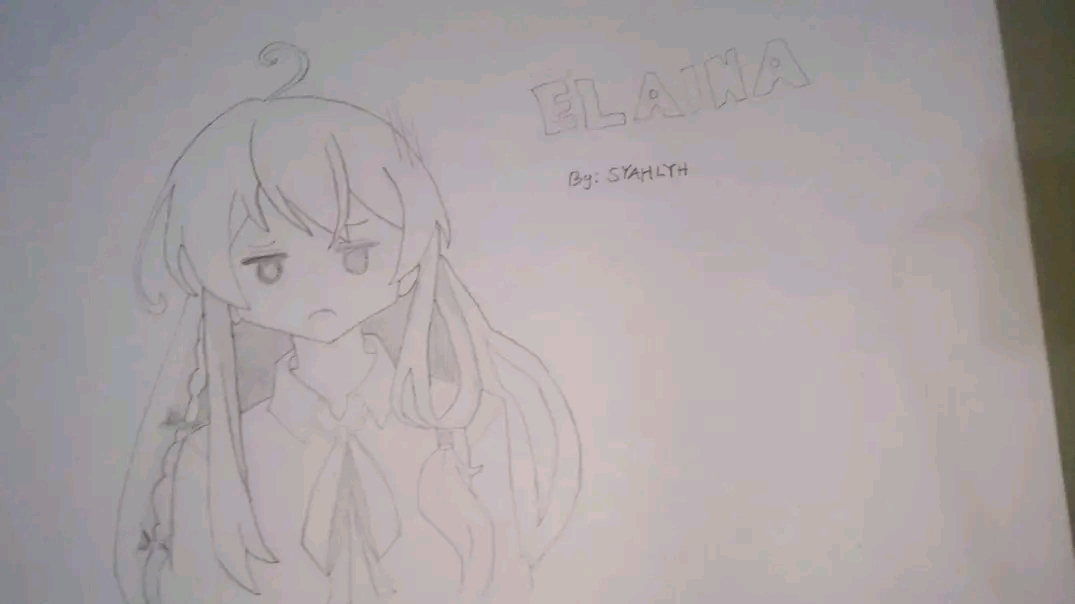 ELAINA
By: SYAHLYH